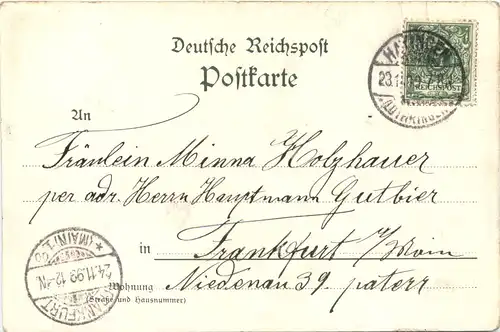 Deutsche Reichspost
Postkarte
HAYINGEN
23.11.99 7-8
(LOTHRINGEN)
REICHSPOST
An
Fräulein Minna Holzhauer
per adr. Herrn Hauptmann Gutbier
in Frankfurt a/Main
Wohnung Niedenau 39. paterr
(Straße und Hausnummer)
* (MAIN) 1.
24.11.99.12-1N.
FRANKFURT